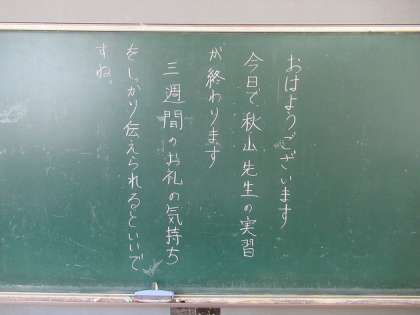 おはようございます
今日で秋山先生の実習
が終わります
三週間のお礼の気持ち
をしっかり伝えられるといいで
すね。